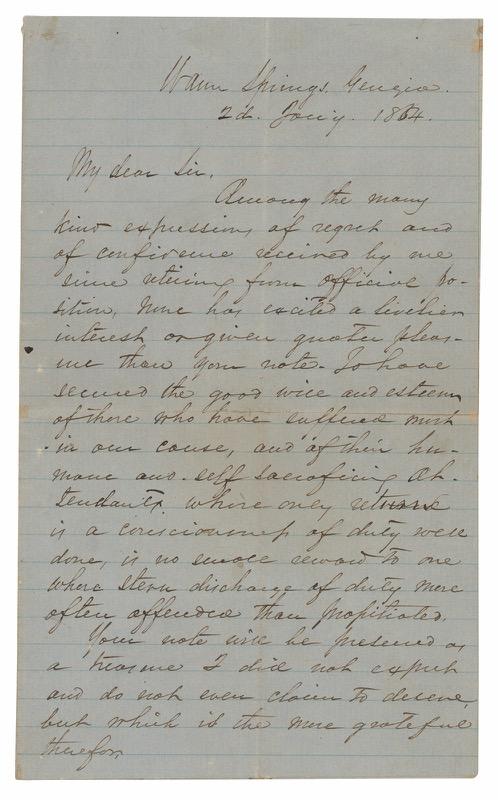 Warm Springs, Georgia.
2d. Jan'y. 1864.
My dear Sir,
Among the many
kind expressions of regret and
of confidence received by me
since retiring from official po-
sition, none has excited a livelier
interest or given greater pleas-
ure than your note. To have
secured the good will and esteem
of those who have suffered most
in our cause, and of their hu-
mane and self sacrificing At-
tendants, whose only
is a consciousness of duty well
done, is no small reward to one
whose stern discharge of duty more
often offended than propitiated.
Your note will be preserved as
a treasure I did not expect
and do not even claim to deserve,
but which is the more grateful
therefor.